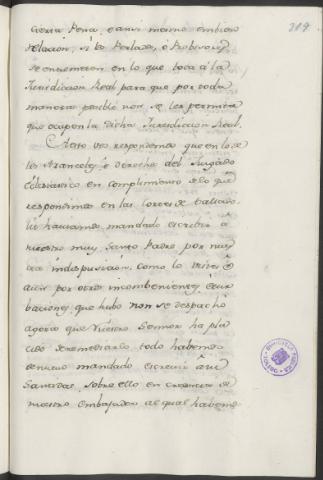 319
cierta Pena, e ansi mismo embien
relacion, si los Perlados, o Probisores
se entremeten en lo que toca á la
Jurisdicion Real para que por toda
manera posible non se les permita
que ocupen la dicha Jurisdicion Real.
A esto vos respondemos que en lo de
los Aranceles, é derechos del Juzgado
Eclesiastico en cumplimiento de lo que
respondimos en las Cortes de Vallado-
lid haviamos mandado escribir á
nuestro muy Santo Padre por nues
tra indisposicion, como lo
por otros imcombenientes, é
baciones que hubo non se despachó
agora que Nuestro Sennor ha pla
cido de remediarlo todo habemos
de nuevo mandado escrevir á su
Santidad sobre ello en creencia de
nuestro Embajador al qual habemos